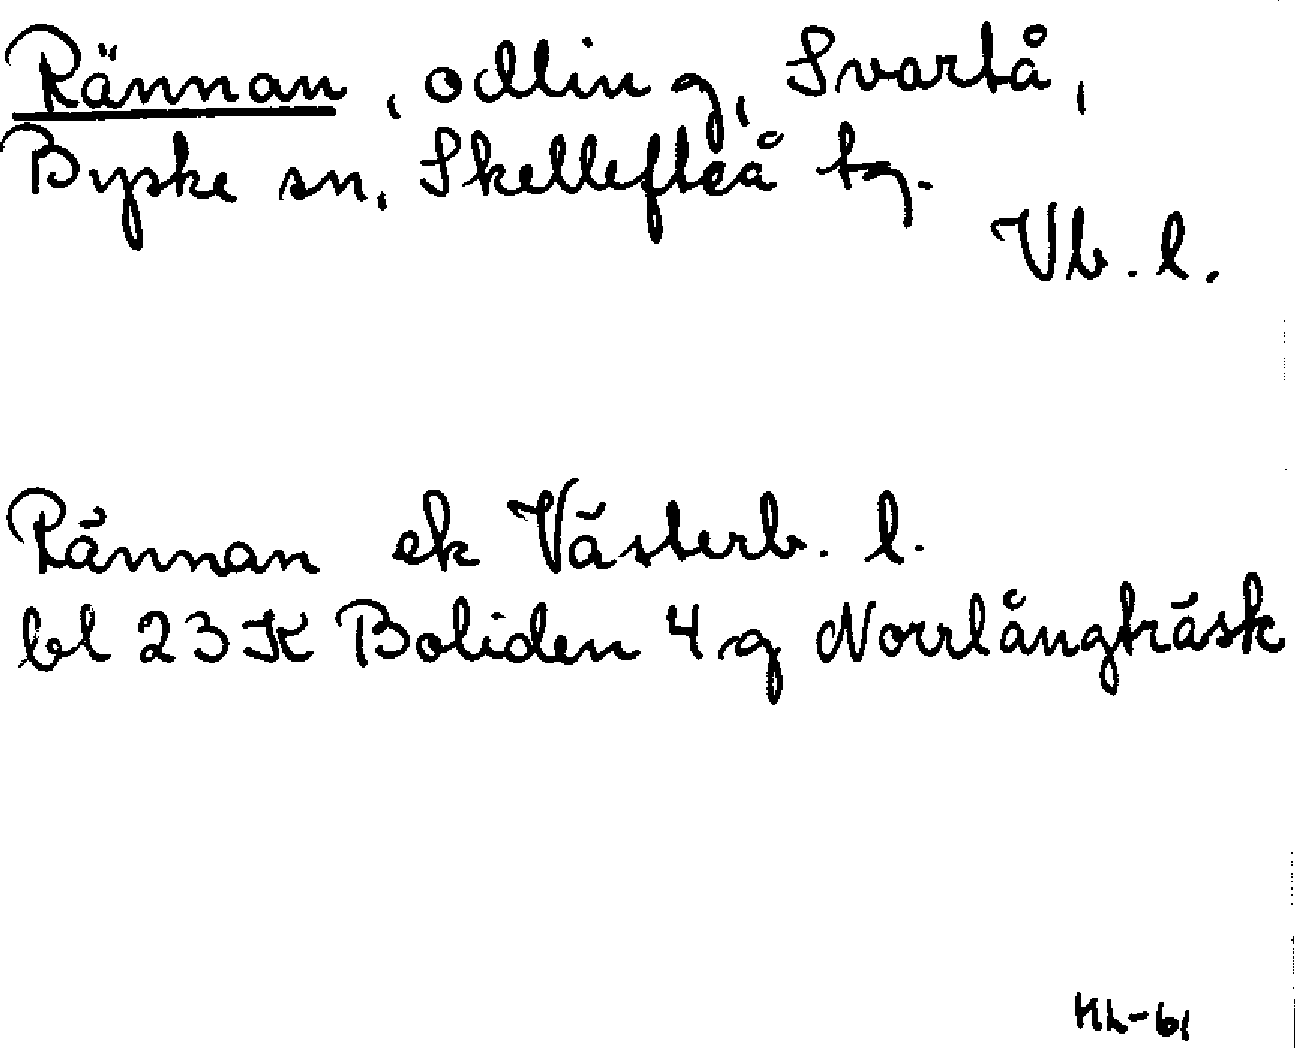 Rännan, odling, Svartå,
Byske sn, Skellefteå tg.
Vb. l.
Rännan ek Västerb. l.
bl 23 K Boliden 4 g Norrlångträsk
HL-61